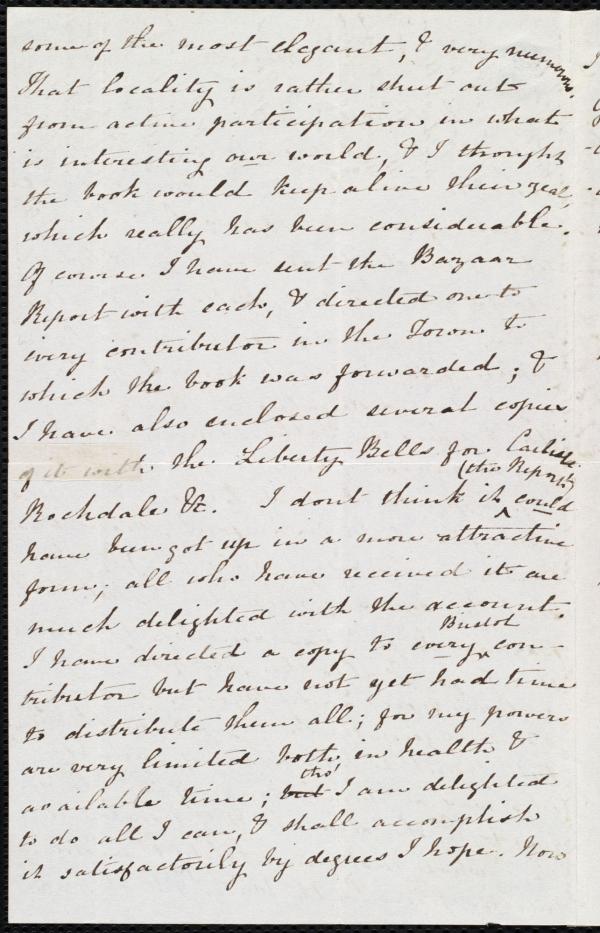 some of the most elegant, & very numerous.
That locality is rather shut out
from active participation in what
is interesting our world, & I thought
the book would keep alive their zeal,
which really has been considerable.
Of course I have sent the Bazaar
Report with each, & directed one to
every contributor in the Town to
which the book was forwarded; &
I have also enclosed several copies
of it with the Liberty Bells for Carlisle
(the Report)
Rochdale &c. I dont think it could
have been got up in a more attractive
form; all who have received it are
much delighted with the account.
Bristol
I have directed a copy to every con-
tributor but have not yet had time
to distribute them all; for my powers
are very limited both in health &
tho'
available time; but I am delighted
to do all I can, & shall accomplish
it satisfactorily by degrees I hope. Now